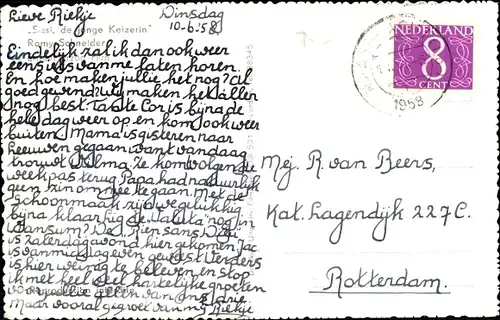 Lieve Riekje
Dinsdag
10-6-'58
"Sissi, de jonge Keizerin"
Romy Schneider
Eindelijk zal ik dan ook weer
eens iets van me laten horen.
En hoe maken jullie het nog? Al
goed gewend? Wij maken het allen
nog best. Tante Cor is bijna de
hele dag weer op en komt ook weer
buiten. Mama is gisteren naar
Leeuwen gegaan want vandaag
trouwt Wilma. Ze komt volgende
week pas terug. Papa had natuurlijk
geen zin om mee te gaan. Met de
schoonmaak zijn we gelukkig
bijna klaar. Ligt de "Jalita" nog in
Wansum? De
is zaterdagavond hier gekomen. Jac.
is vanmiddag even geweest. Verders
is hier weinig te beleven en stop
ik met heel veel hartelijke groeten
voor jullie allen van ons drie.
Maar vooral gegroet van mij Riekje
NEDERLAND
8
CENT
1958
Mej. R. van Beers,
Kat. Lagendijk 227 C.
Rotterdam.